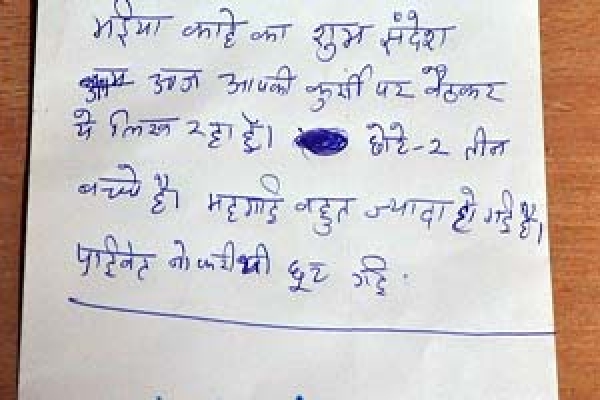 भईया काहे का शुभ संदेश
आज आपकी कुर्सी पर बैठकर
ये लिख रहा हूँ। छोटे-२ तीन
बच्चे है। महगाई बहुत ज्यादा हो गई है।
प्राईवेट नोकरी भी छूट गई.